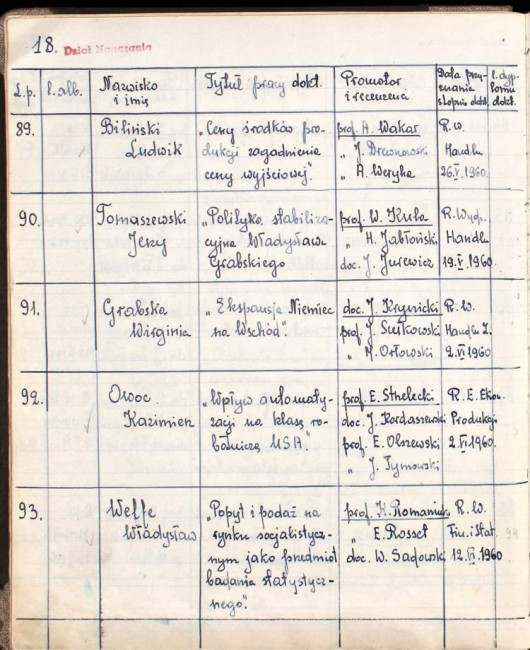 18. Dział Nauczania
L.p. l. alb. Nazwisko i imię Tytuł pracy dokt. Promotor i recenzenci Data przyznania stopnia dokt. l. dyplomu dokt.
89. Biliński „Ceny środków pro- prof. A. Wakar R. W.
Ludwik dukcji zagadnienie „ J. Drewnowski Handlu
ceny wyjściowej". „ A. Weryha 26.V.1960.
90. Tomaszewski „Polityka stabiliza- prof. W. Kula R. Wydz.
Jerzy cyjna Władysława „ H. Jabłoński Handlu
Grabskiego doc. J. Jurewicz 19.V.1960.
91. Grabska „Ekspansja Niemiec doc. J. Krynicki R. W.
Wirginia na Wschód". prof. J. Sutkowski Handlu Z.
„ M. Orłowski 2.VI.1960
92. Owoc „Wpływ automaty- prof. E. Strzelecki R. E. Ekon.
Kazimierz zacji na klasę ro- doc. J. Kordaszewski Produkcji
botniczą USA". prof. E. Olszewski 2.VI.1960.
„ J. Tymowski
93. Welfe „Popyt i podaż na prof. K. Romaniuk R. W.
Władysław rynku socjalistycz- „ E. Rosset Fin. i Stat.
nym jako przedmiot doc. W. Sadowski 12.VI.1960
badania statystycz-
nego".